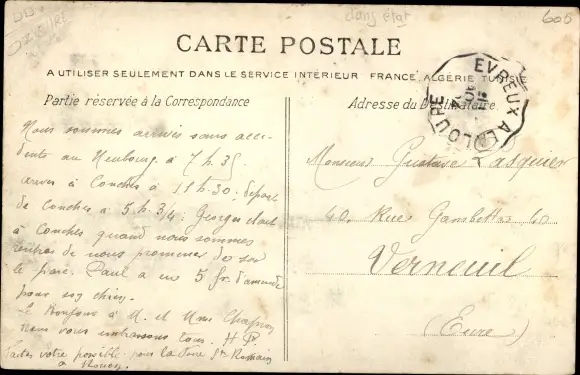 dans état
605
CARTE POSTALE
A UTILISER SEULEMENT DANS LE SERVICE INTÉRIEUR FRANCE, ALGÉRIE TUNISIE
Partie réservée à la Correspondance
Adresse du Destinataire
EVREUX A LA LOUPE
Nous sommes arrivés sans acci-
dents au Neubourg à 7 h. 35
arrivés à Conches à 11 h-30; départ
de Conches à 5 h. 3/4; Georges était
à Conches quand nous sommes
de nous promener
le parc. Paul a eu 5 fr. d'amende
pour son chien.
Le bonjour à M. et Mme
Nous vous embrassons tous. H P.
Faites votre possible pour la foire St Romain
à Rouen.
Monsieur Gustave Lasquier
40, Rue Gambetta 40
Verneuil
(Eure)